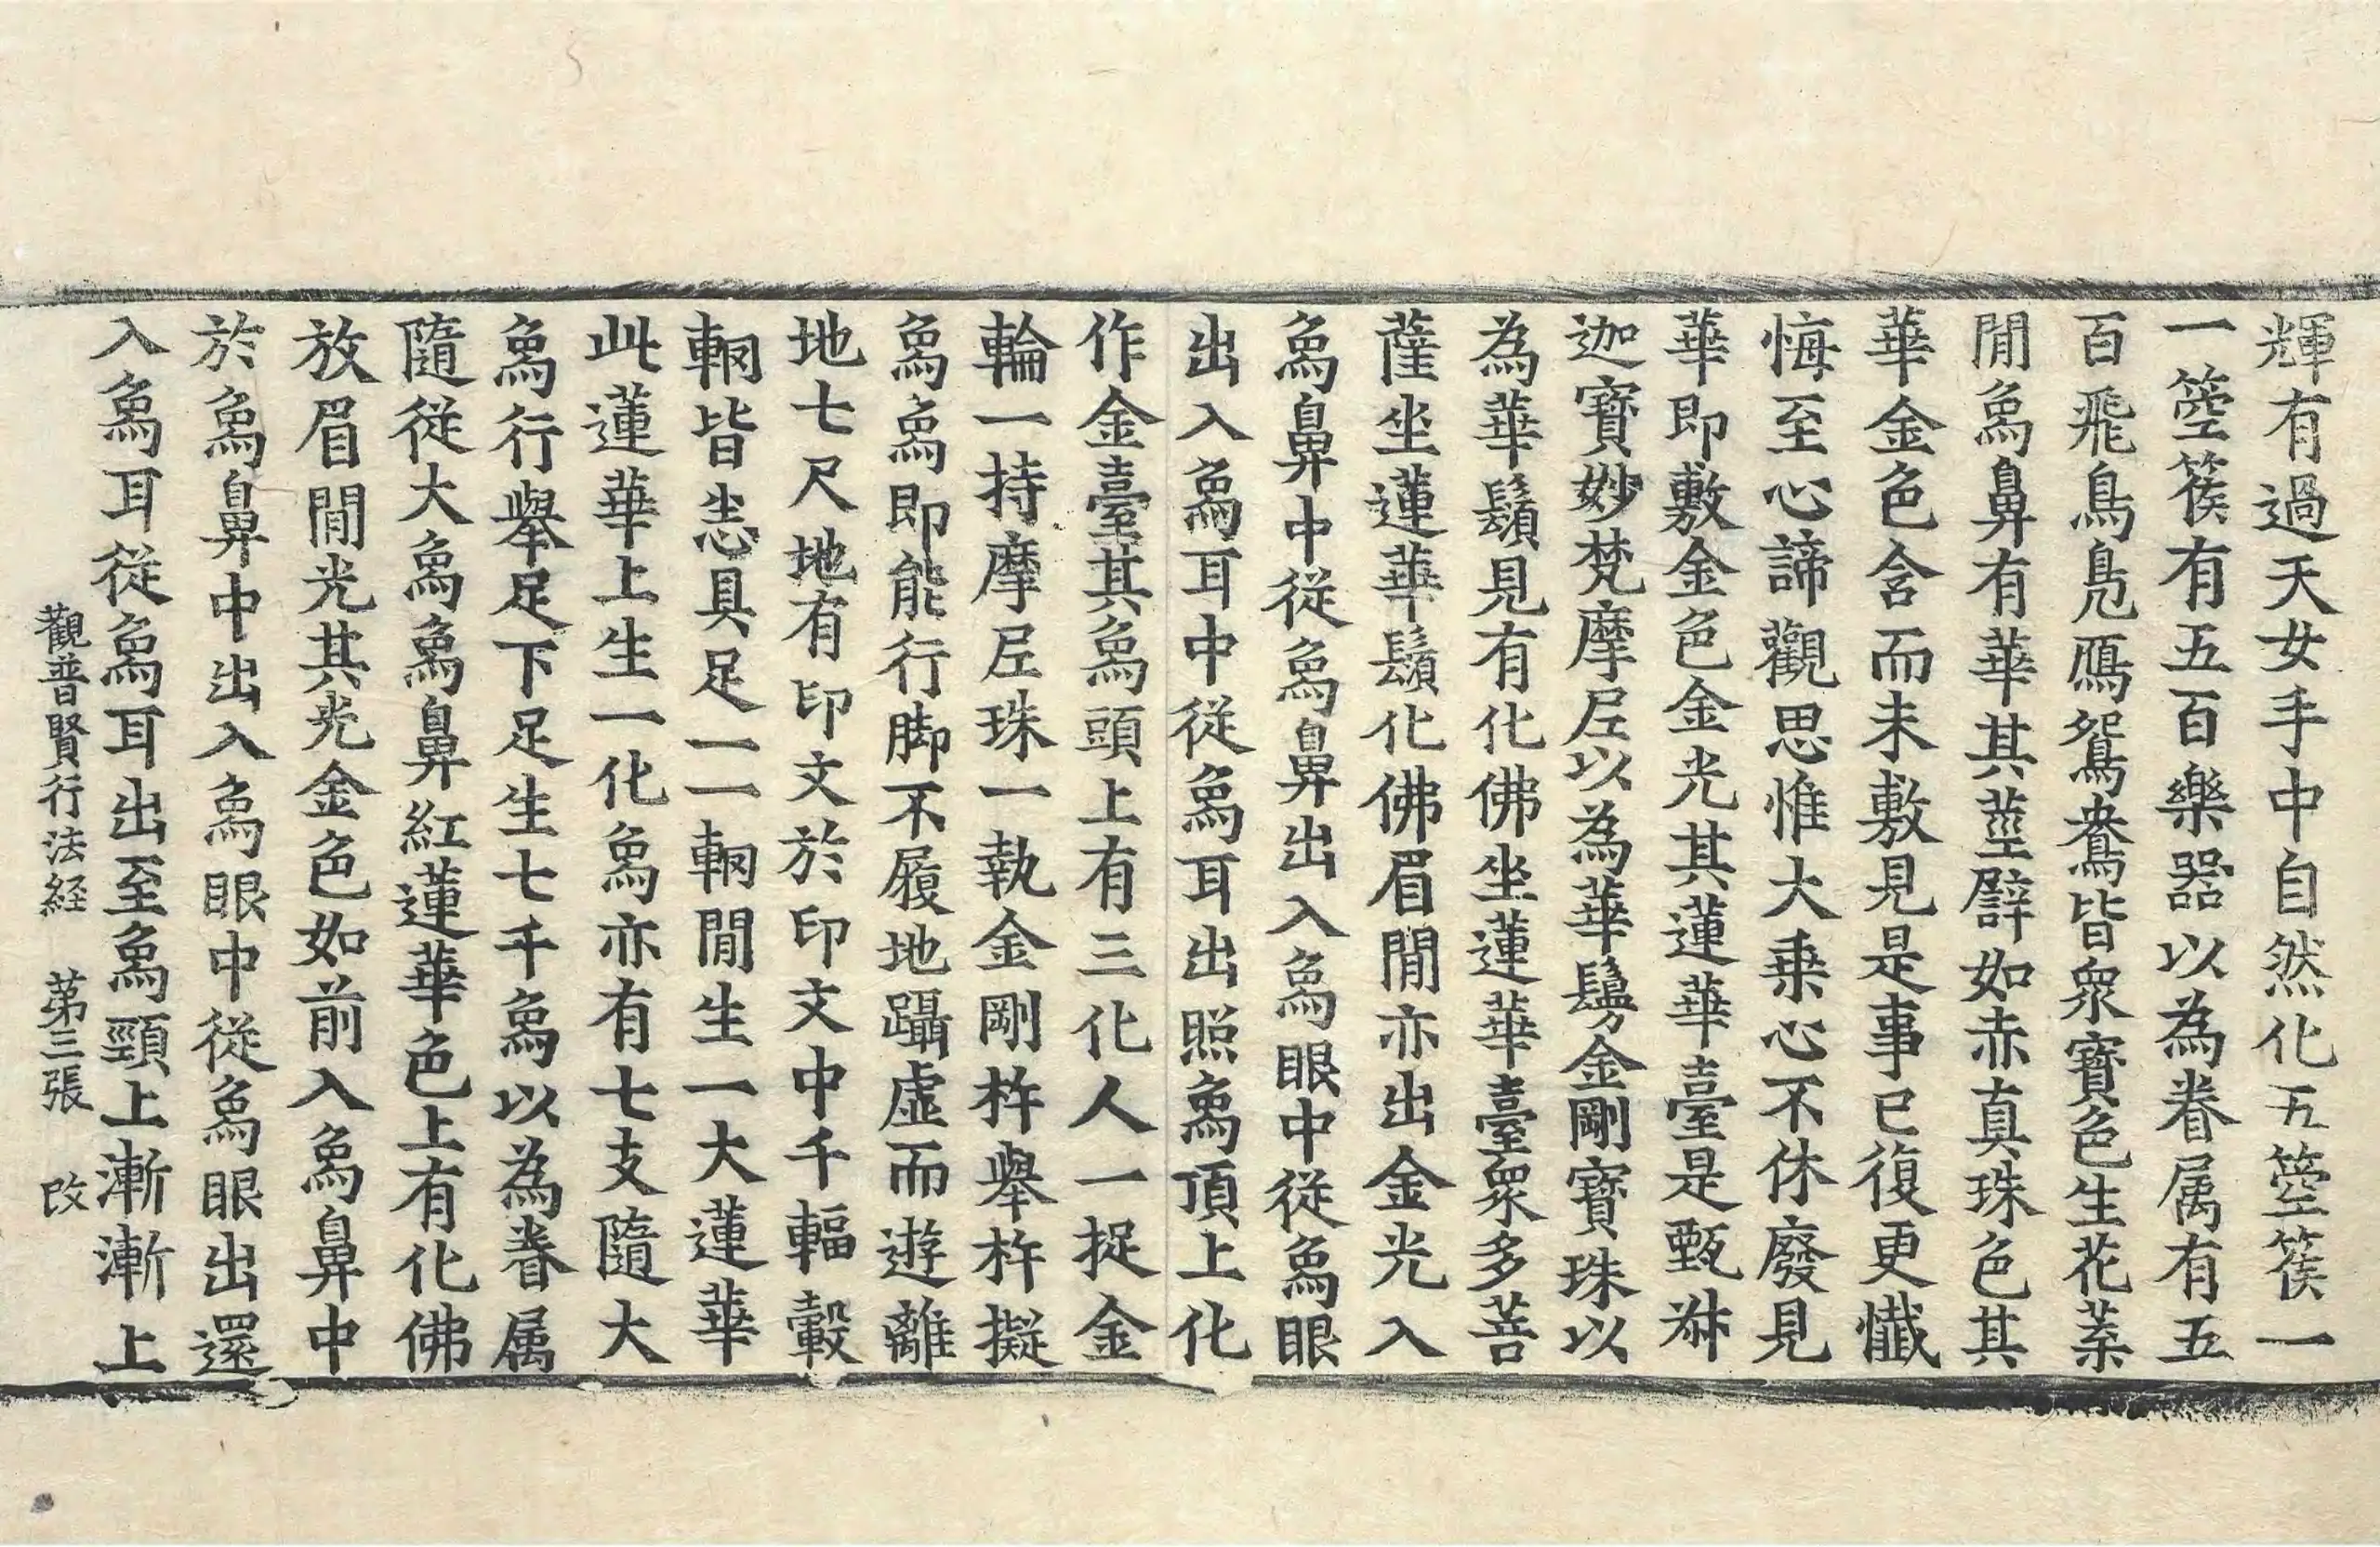 輝有過天女手中自然化五箜篌一
一箜篌有五百樂器以為眷属有五
百飛鳥鳬鴈鴛鴦皆衆寶色生花葉
閒象鼻有華其莖譬如赤真珠色其
華金色含而未敷見是事已復更懺
悔至心諦觀思惟大乗心不休廢見
華即敷金色金光其蓮華臺是甄叔
迦寶妙梵摩尼以為華鬘金剛寶珠以
為華鬚見有化佛坐蓮華臺衆多菩
薩坐蓮華鬚化佛眉閒亦出金光入
象鼻中從象鼻出入象眼中從象眼
出入象耳中從象耳出照象頂上化
作金臺其象頭上有三化人一捉金
輪一持摩尼珠一執金剛杵舉杵擬
象象即能行脚不履地躡虛而遊離
地七尺地有印文於印文中千輻轂
輞皆悉具足一一輞閒生一大蓮華
此蓮華上生一化象亦有七支隨大
象行舉足下足生七千象以為眷属
隨從大象象鼻紅蓮華色上有化佛
放眉閒光其光金色如前入象鼻中
於象鼻中出入象眼中從象眼出還
入象耳從象耳出至象頸上漸漸上
觀普賢行法経 苐三張 改